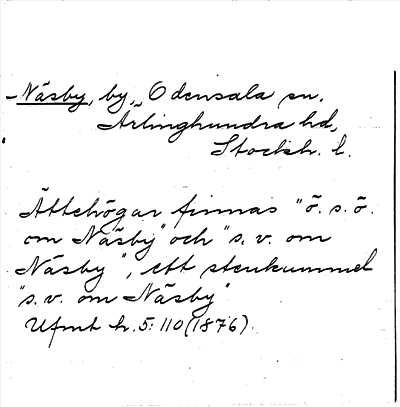 – Näsby, by, Odensala sn.
Ärlinghundra hd,
Stockh. l.
Ättehögar finnas "ö. s. ö.
om Näsby" och "s. v. om
Näsby", ett stenkummel
"s. v. om Näsby"
Ufmt h. 5: 110 (1876).